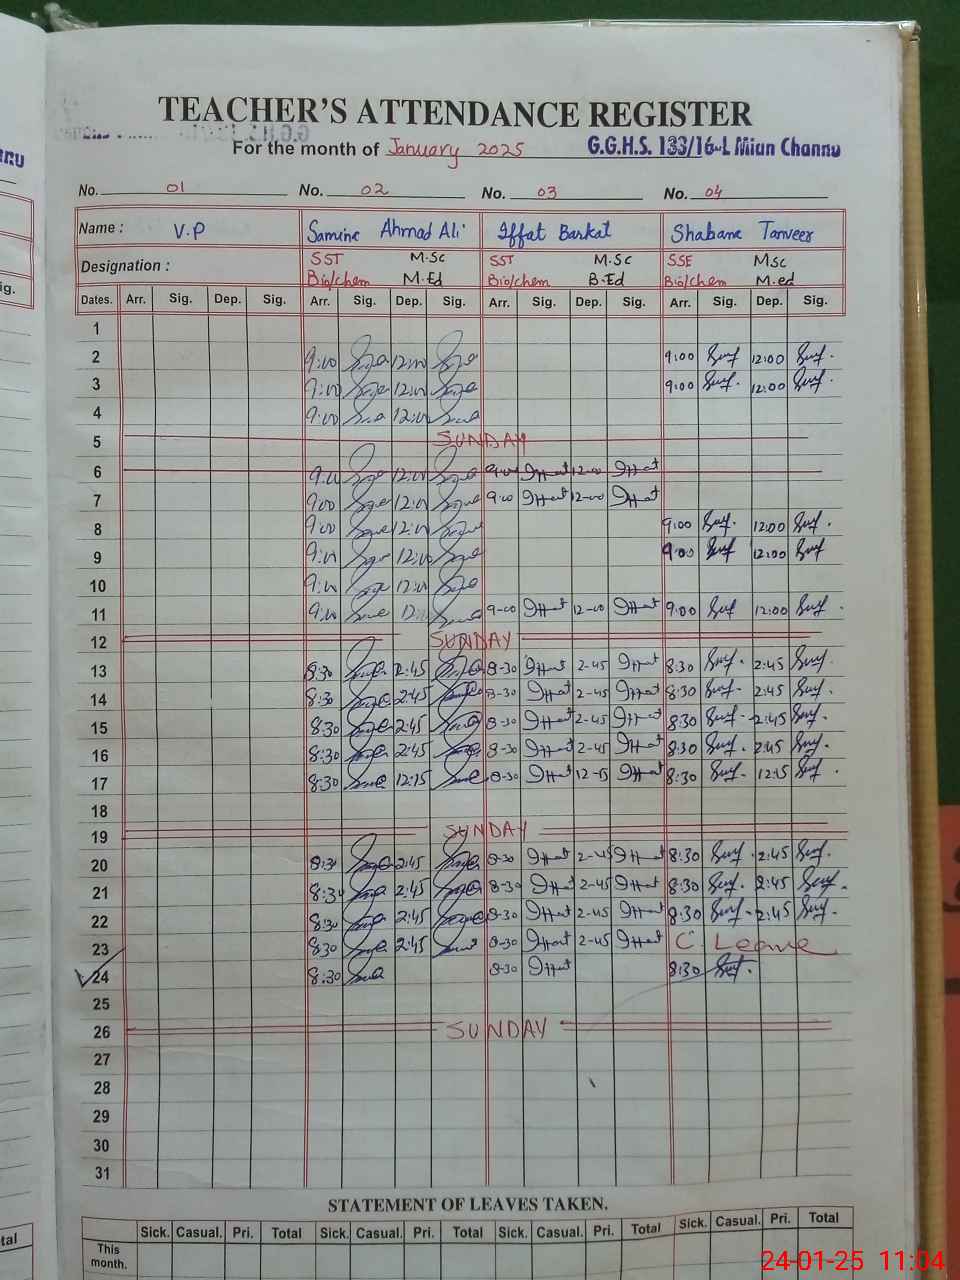 TEACHER'S ATTENDANCE REGISTER
For the month of January 2025 G.G.H.S. 133/16-L Mian Channu
No. 01 No. 02 No. 03 No. 04
Name : V.P Samine Ahmad Ali Iffat Barkat Shabana Tanveer
Designation : SST M.Sc SST M.Sc SSE M.Sc
Bio/chem M.Ed Bio/chem B.Ed Bio/chem M.ed
Dates. Arr. Sig. Dep. Sig. Arr. Sig. Dep. Sig. Arr. Sig. Dep. Sig. Arr. Sig. Dep. Sig.
1
2 9:00 12:00 9:00 12:00
3 9:00 12:00 9:00 12:00
4 9:00 12:00
5 SUNDAY
6 9:00 12:00 9:00 Iffat 12-00 Iffat
7 9:00 12:00 9:00 Iffat 12-00 Iffat
8 9:00 12:00 9:00 12:00
9 9:00 12:00 9:00 12:00
10 9:00 12:00
11 9:00 12:00 9-00 Iffat 12-00 Iffat 9:00 12:00
12 SUNDAY
13 8:30 2:45 8-30 Iffat 2-45 Iffat 8:30 2:45
14 8:30 2:45 8-30 Iffat 2-45 Iffat 8:30 2:45
15 8:30 2:45 8-30 Iffat 2-45 Iffat 8:30 2:45
16 8:30 2:45 8-30 Iffat 2-45 Iffat 8:30 2:45
17 8:30 12:15 8-30 Iffat 12-15 Iffat 8:30 12:15
18
19 SUNDAY
20 8:30 2:45 8-30 Iffat 2-45 Iffat 8:30 2:45
21 8:30 2:45 8-30 Iffat 2-45 Iffat 8:30 2:45
22 8:30 2:45 8-30 Iffat 2-45 Iffat 8:30 2:45
23 8:30 2:45 8-30 Iffat 2-45 Iffat C. Leave
24 8:30 8-30 Iffat 8:30
25
26 SUNDAY
27
28
29
30
31
STATEMENT OF LEAVES TAKEN.
Sick. Casual. Pri. Total Sick. Casual. Pri. Total Sick. Casual. Pri. Total Sick. Casual. Pri. Total
This
month.
24-01-25 11:04